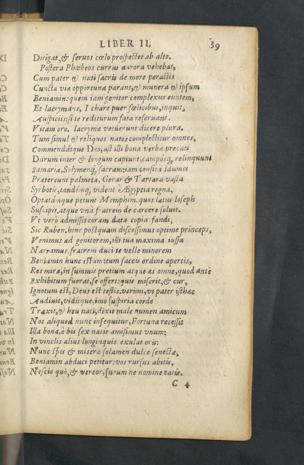 LIBER II. 39
Dirigat, & seruos cœlo prospectet ab alto.
Postera Phœbeos currus aurora vehebat,
Cum pater & nati sacris de more peractis
Cuncta viæ opportuna parant, & munera & ipsum
Beniamin: quem iam genitor complexus euntem,
Et lacrymans, I chare puer fœlicibus, inquit,
Auspiciis, si te rediturum fata reseruant.
Vitam oro. lacrymæ vetuerunt dicere plura.
Tum simul & reliquos natos complectitur omnes,
Commendatque Deo, ast illi bona verba precati
Durum iter & longum capiunt, camposque relinquunt
Samariæ, Solymosque, sacram tam consita
Prætereunt palmeta, Geræ & Terrara vasta
Syrbotis, tandemque vident Ægyptia regna,
Optatamque petunt Memphim. quos lætus Ioseph
Suscipit, atque vna fratrem de carcere soluit.
Vt verò admissis coram data copia fandi,
Sic Ruben, hinc postquam discessimus optime princeps,
Venimus ad genitorem, illi tua maxima iussa
Narramus, fratrem duci te velle minorem
Beniamin hunc est tum saccus ordine apertis,
Res mira, in summis pretium atque æs omne, quod antè
Exhibitum fuerat, se offert: quis miserit, & cur,
Ignotum est, Deus est testis. verùm, vt pater isthæc
Audiuit, vidique, imo suspiria corde
Traxit, & heu nati, dixit male numen amicum
Nos aliquod nunc insequitur, Fortuna recessit
Illa bona, è bis sex natis amisimus vnum:
In vinclis alius longinquis exulat oris:
Nunc spes & miseræ solamen dulce senectæ,
Beniamin abduci petitur, vos rursus abitis,
Nescio quò, & vereor, furum ne nomine
C 4